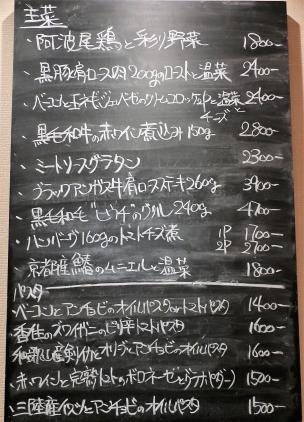 主菜
・阿波尾鶏と彩り野菜 1800-
・黒豚肩ロース肉200gのローストと温菜 2400-
・ベーコンとエキミジュベセのクリームコロッケ1Pと温菜 2400-
チーズ
・黒毛和牛の赤ワイン煮込み150g 2800-
・ミートソースグラタン 2300-
・ブラックアンガス牛肩ロースステーキ260g 3900-
・黒毛和牛"ヒウチ"のグリル240g 4700-
・ハンバーグ160gのトマトチーズ煮 1P 1700-
2P 2700-
・京都産鰆のムニエルと温菜 1800-
パスタ
・ベーコンとアンチョビのオイルパスタorトマトパスタ 1400-
・香住のズワイガニのピリ辛トマトパスタ 1600-
・和歌山産剣イカとオリーブとアンチョビのオイルパスタ 1600-
・赤ワインと完熟トマトのボロネーゼ(ピグラパダーノ) 1500-
・三陸産イワシとアンチョビのオイルパスタ 1500-